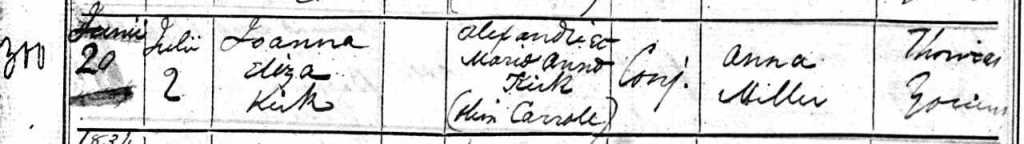 300
Junii
20
Julii
2
Joanna
Eliza
Kirk
Alexandri et
Maria Anna
Kirk
(olim Carrole)
Conj.
Anna
Miller
Thomas